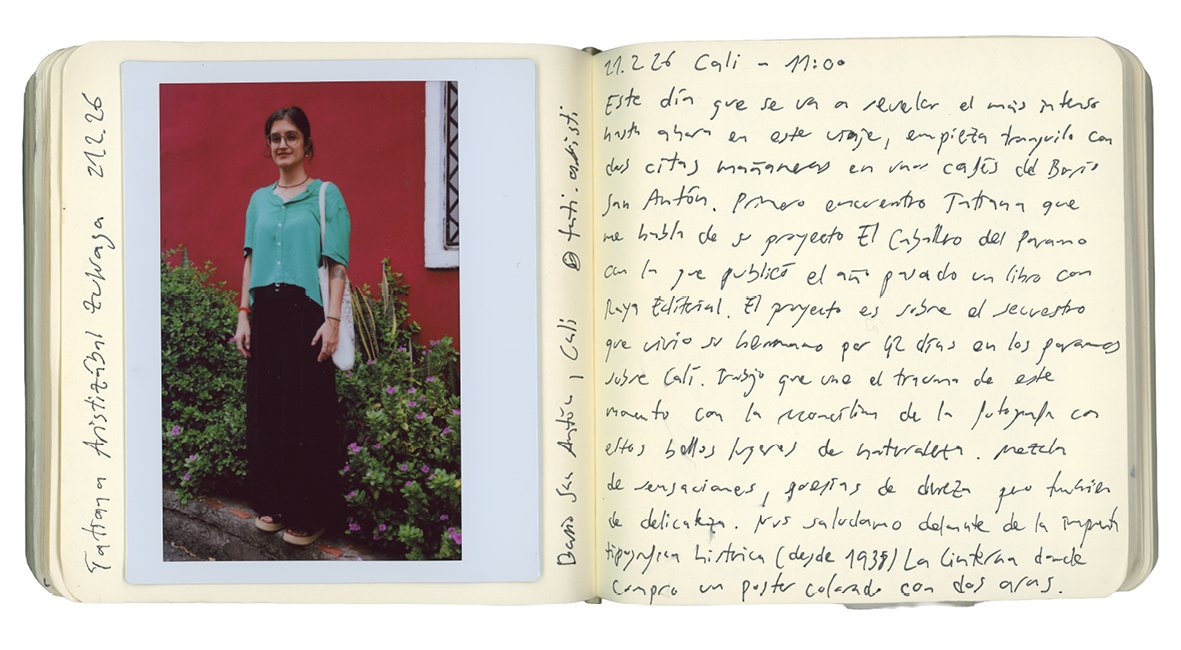 Tatiana Aristizábal Zuluaga 21.2.26
Barrio San Antón, Cali @tati.aristi
21.2.26 Cali - 11:00
Este día que se va a revelar el más intenso
hasta ahora en este viaje, empieza tranquilo con
dos citas mañaneras en unos cafés de Barrio
San Antón. Primero encuentro Tatiana que
me habla de su proyecto El Caballero del Paramo
con la que publicó el año pasado un libro con
Raya Editorial. El proyecto es sobre el secuestro
que vivió su hermano por 42 días en los paramos
sobre Cali. Trabajo que une el trauma de este
momento con la de la fotografa con
estos bellos lugares de naturaleza. Mezcla
de sensaciones, de dureza pero tambien
de delicateza. Nos saludamo delante de la imprenta
tipografica historica (desde 1938) La Linterna donde
compro un poster colorado con dos aras.